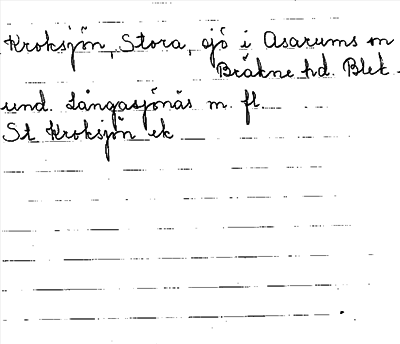 Kroksjön, Stora, sjö i Asarums sn
Bräkne hd. Blek.
und. Långasjönäs m. fl.
St Kroksjön ek